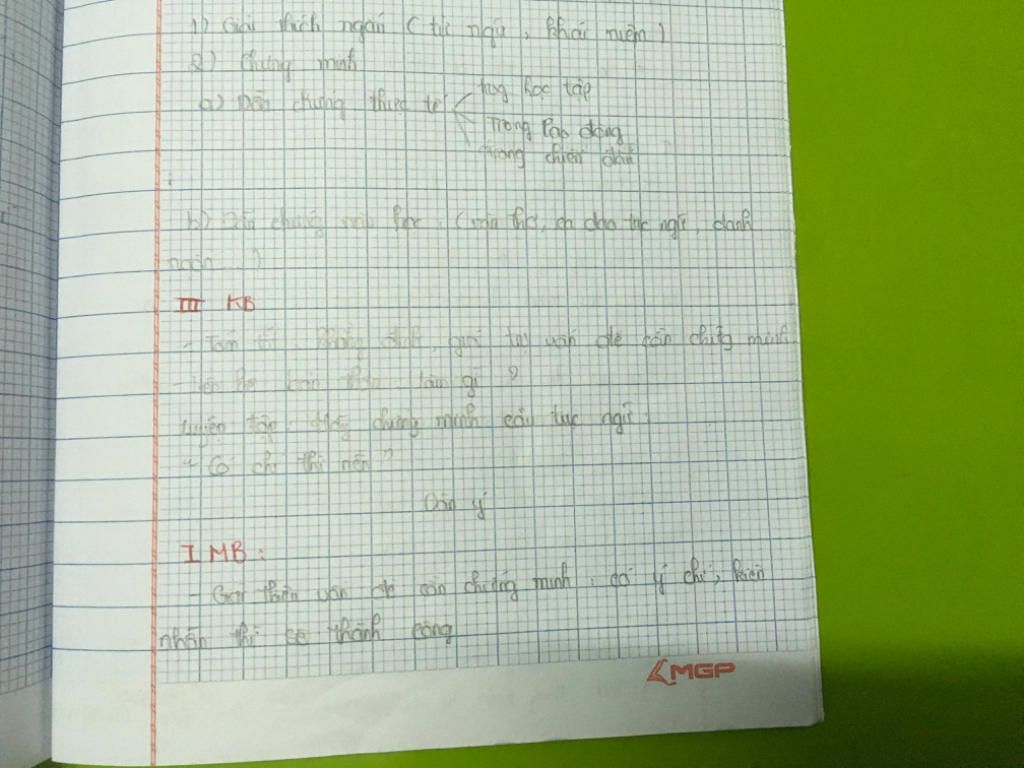 1) Giải thích ngắn (từ ngữ, khái niệm)
2) Chứng minh
a) Dẫn chứng thực tế
trong học tập
Trong lao động
trong chiến đấu
b) Dẫn chứng văn học (văn thơ, ca dao tục ngữ, danh
ngôn...)
III KB
- Tóm tắt, khẳng định, giá trị vấn đề cần chứng minh.
- Liên hệ bản thân: làm gì?
Luyện tập: Hãy chứng minh câu tục ngữ:
"Có chí thì nên"
Dàn ý
I MB:
- Giới thiệu vấn đề cần chứng minh: có ý chí, kiên
nhẫn thì sẽ thành công
MGP